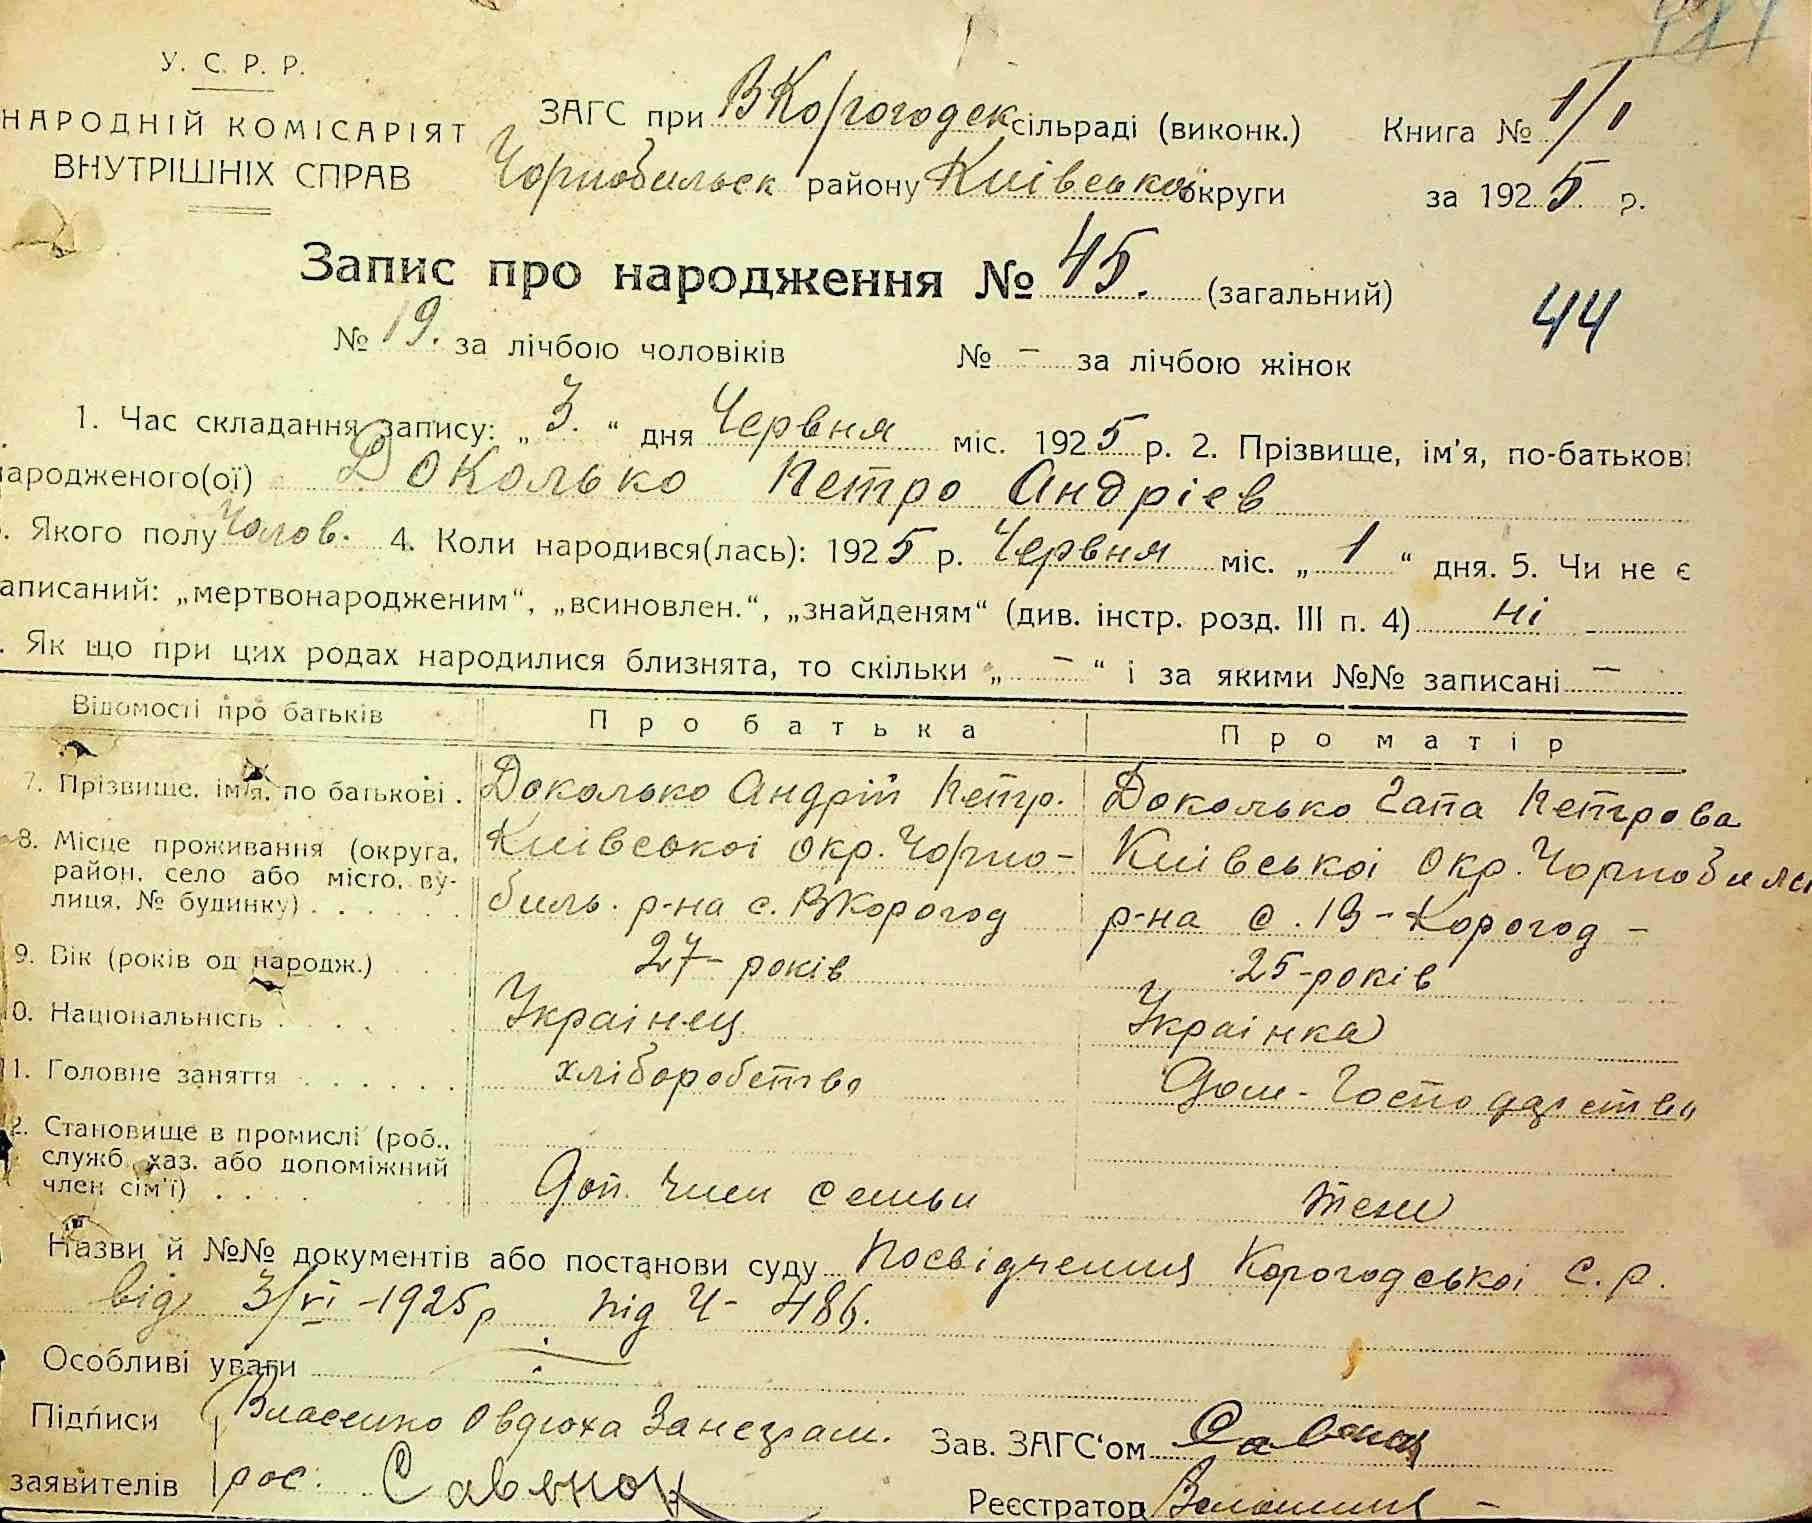 У. С. Р. Р.
НАРОДНІЙ КОМІСАРІЯТ
ВНУТРІШНІХ СПРАВ
ЗАГС при ВКорогодек сільраді (виконк.)
Чорнобильск району Київської округи
Книга № 1/1
за 1925 р.
Запис про народження № 45. (загальний)
44
№ 19. за лічбою чоловіків № – за лічбою жінок
1. Час складання запису: „3.“ дня Червня міс. 1925 р. 2. Прізвище, ім'я, по-батькові
народженого(ої) Доколько Петро Андрієв
. Якого полу Чолов. 4. Коли народився(лась): 1925 р. Червня міс. „1“ дня. 5. Чи не є
аписаний: „мертвонародженим“, „всиновлен.“, „знайденям“ (див. інстр. розд. III п. 4) ні –
. Як що при цих родах народилися близнята, то скільки „–“ і за якими №№ записані –
Відомості про батьків Про батька Про матір
7. Прізвище, ім'я, по батькові . Доколько Андрій Петр. Доколько Гапа Петрова
8. Місце проживання (округа, район, село або місто, вулиця, № будинку) . . . . . .
Київської окр. Чорно-
биль. р-на с. ВКорогод
Київскоі окр. Чорнобильс
р-на с. В-Корогод –
9. Вік (років од народж.) . . 27– років 25-років
10. Національність . . . . . Українец Українка
11. Головне заняття . . . . . . хліборобство Дом-Господарство
12. Становище в промислі (роб., служб. хаз. або допоміжний член сім'ї) . . . .
Доп. член семьи теж
Назви й №№ документів або постанови суду Посвідчення Корогодської с. р.
від 3/VI –1925 р під Ч– 486.
Особливі уваги
Підписи заявителів
Власенко Овдюха Занеграм.
рос. Савенок
Зав. ЗАГС'ом
Реєстратор